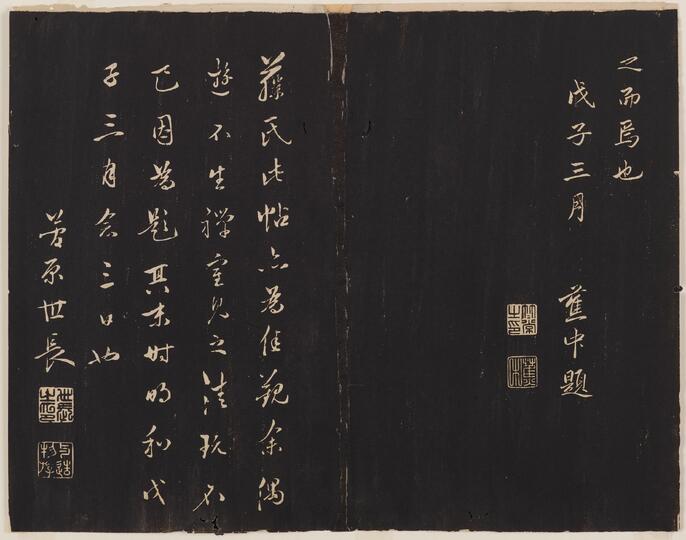 之而焉也
戊子三月　蕉中題
藤氏此帖亦為佳觀余偶
遊不生禅室見之清玩不
已因為題其末時明和戊
子三月念三日也
菅原世長